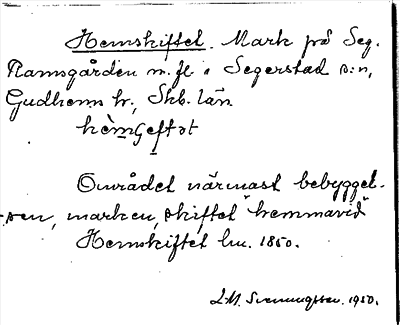 Hemskiftet. Mark på Seg.
Ramsgården m. fl. i Segerstad s:n,
Gudhems hr, Skb. län
hèmʃeftət
Området närmast bebyggel-
sen, marken, skiftet "hemmavid"
Hemskiftet lm. 1850.
Svenungsson. 1950.